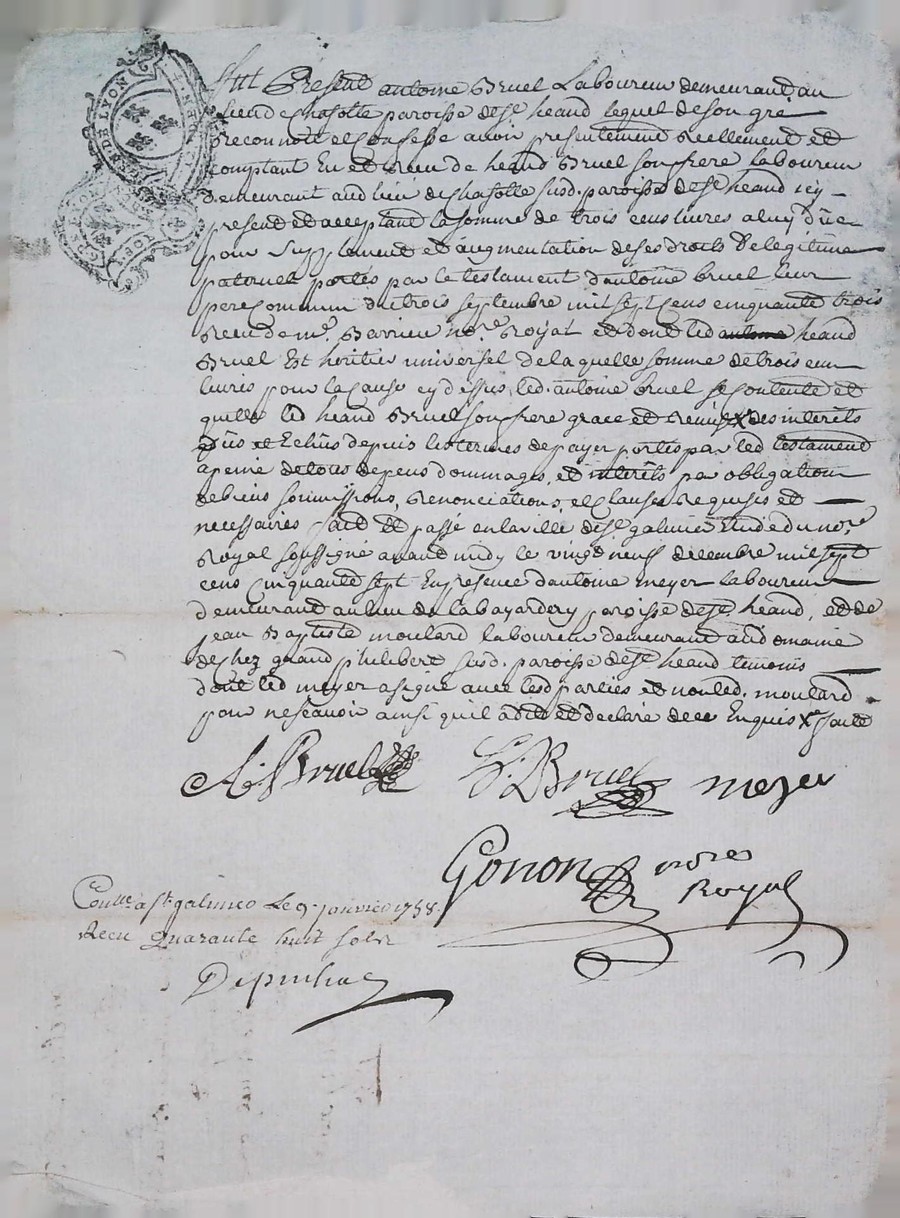 fut Present antoine Bruel Laboureur demeurant au
lieud chasotte paroisse de st. heand lequel de son gré
reconnoit et confesse avoir presentement reellement et
comptant Eu et Receu de heand Bruel son frere Laboureur
demeurant aud lieu de chasotte susd. paroisse de st. heand icy
present et acceptant la somme de trois cens livres a luy düe
pour supplement et augmentation de ses droits de legitime
paternels portés par le testament d'antoine bruel leur
pere commun du trois septembre mil sept Cens cinquante trois
Receu de me. Barrieu nore. Royal et dont led antoine heand
Bruel Est heritier universel de la quelle somme de trois cens
livres pour la cause cy dessus, led. antoine bruel se contente et
quitte led heand Bruel son frere grace et remise X des interêts
dûs et Echûs depuis les termes de payer portés par led testament
a peine de tous depens dommages, et interêts par obligation
de biens soumissions, renonciations, et clauses Requises et
necessaires fait et passé en la ville de st. galmier Etude du nore.
Royal soussigné avant midy le vingt neuf decembre mil sept
cens Cinquante sept En presence d'antoine meyer laboureur
demeurant au lieu de la bayardery paroisse de st. heand, et de
jean Baptiste moulard laboureur demeurant au domaine
de chez grand philibert susd. paroisse de st. heand temoins
dont led meyer a signé avec lesd parties et non led. moulard
pour ne scavoir ainsi qu'il a dit et declaré de ce Enquis X faite
A. Bruel
h. Bruel
meyer
Gonon nore
Royal
Conlle. a st. galmier Le 9. janvier 1758.
Receu Quarante huit sols
DE LYON